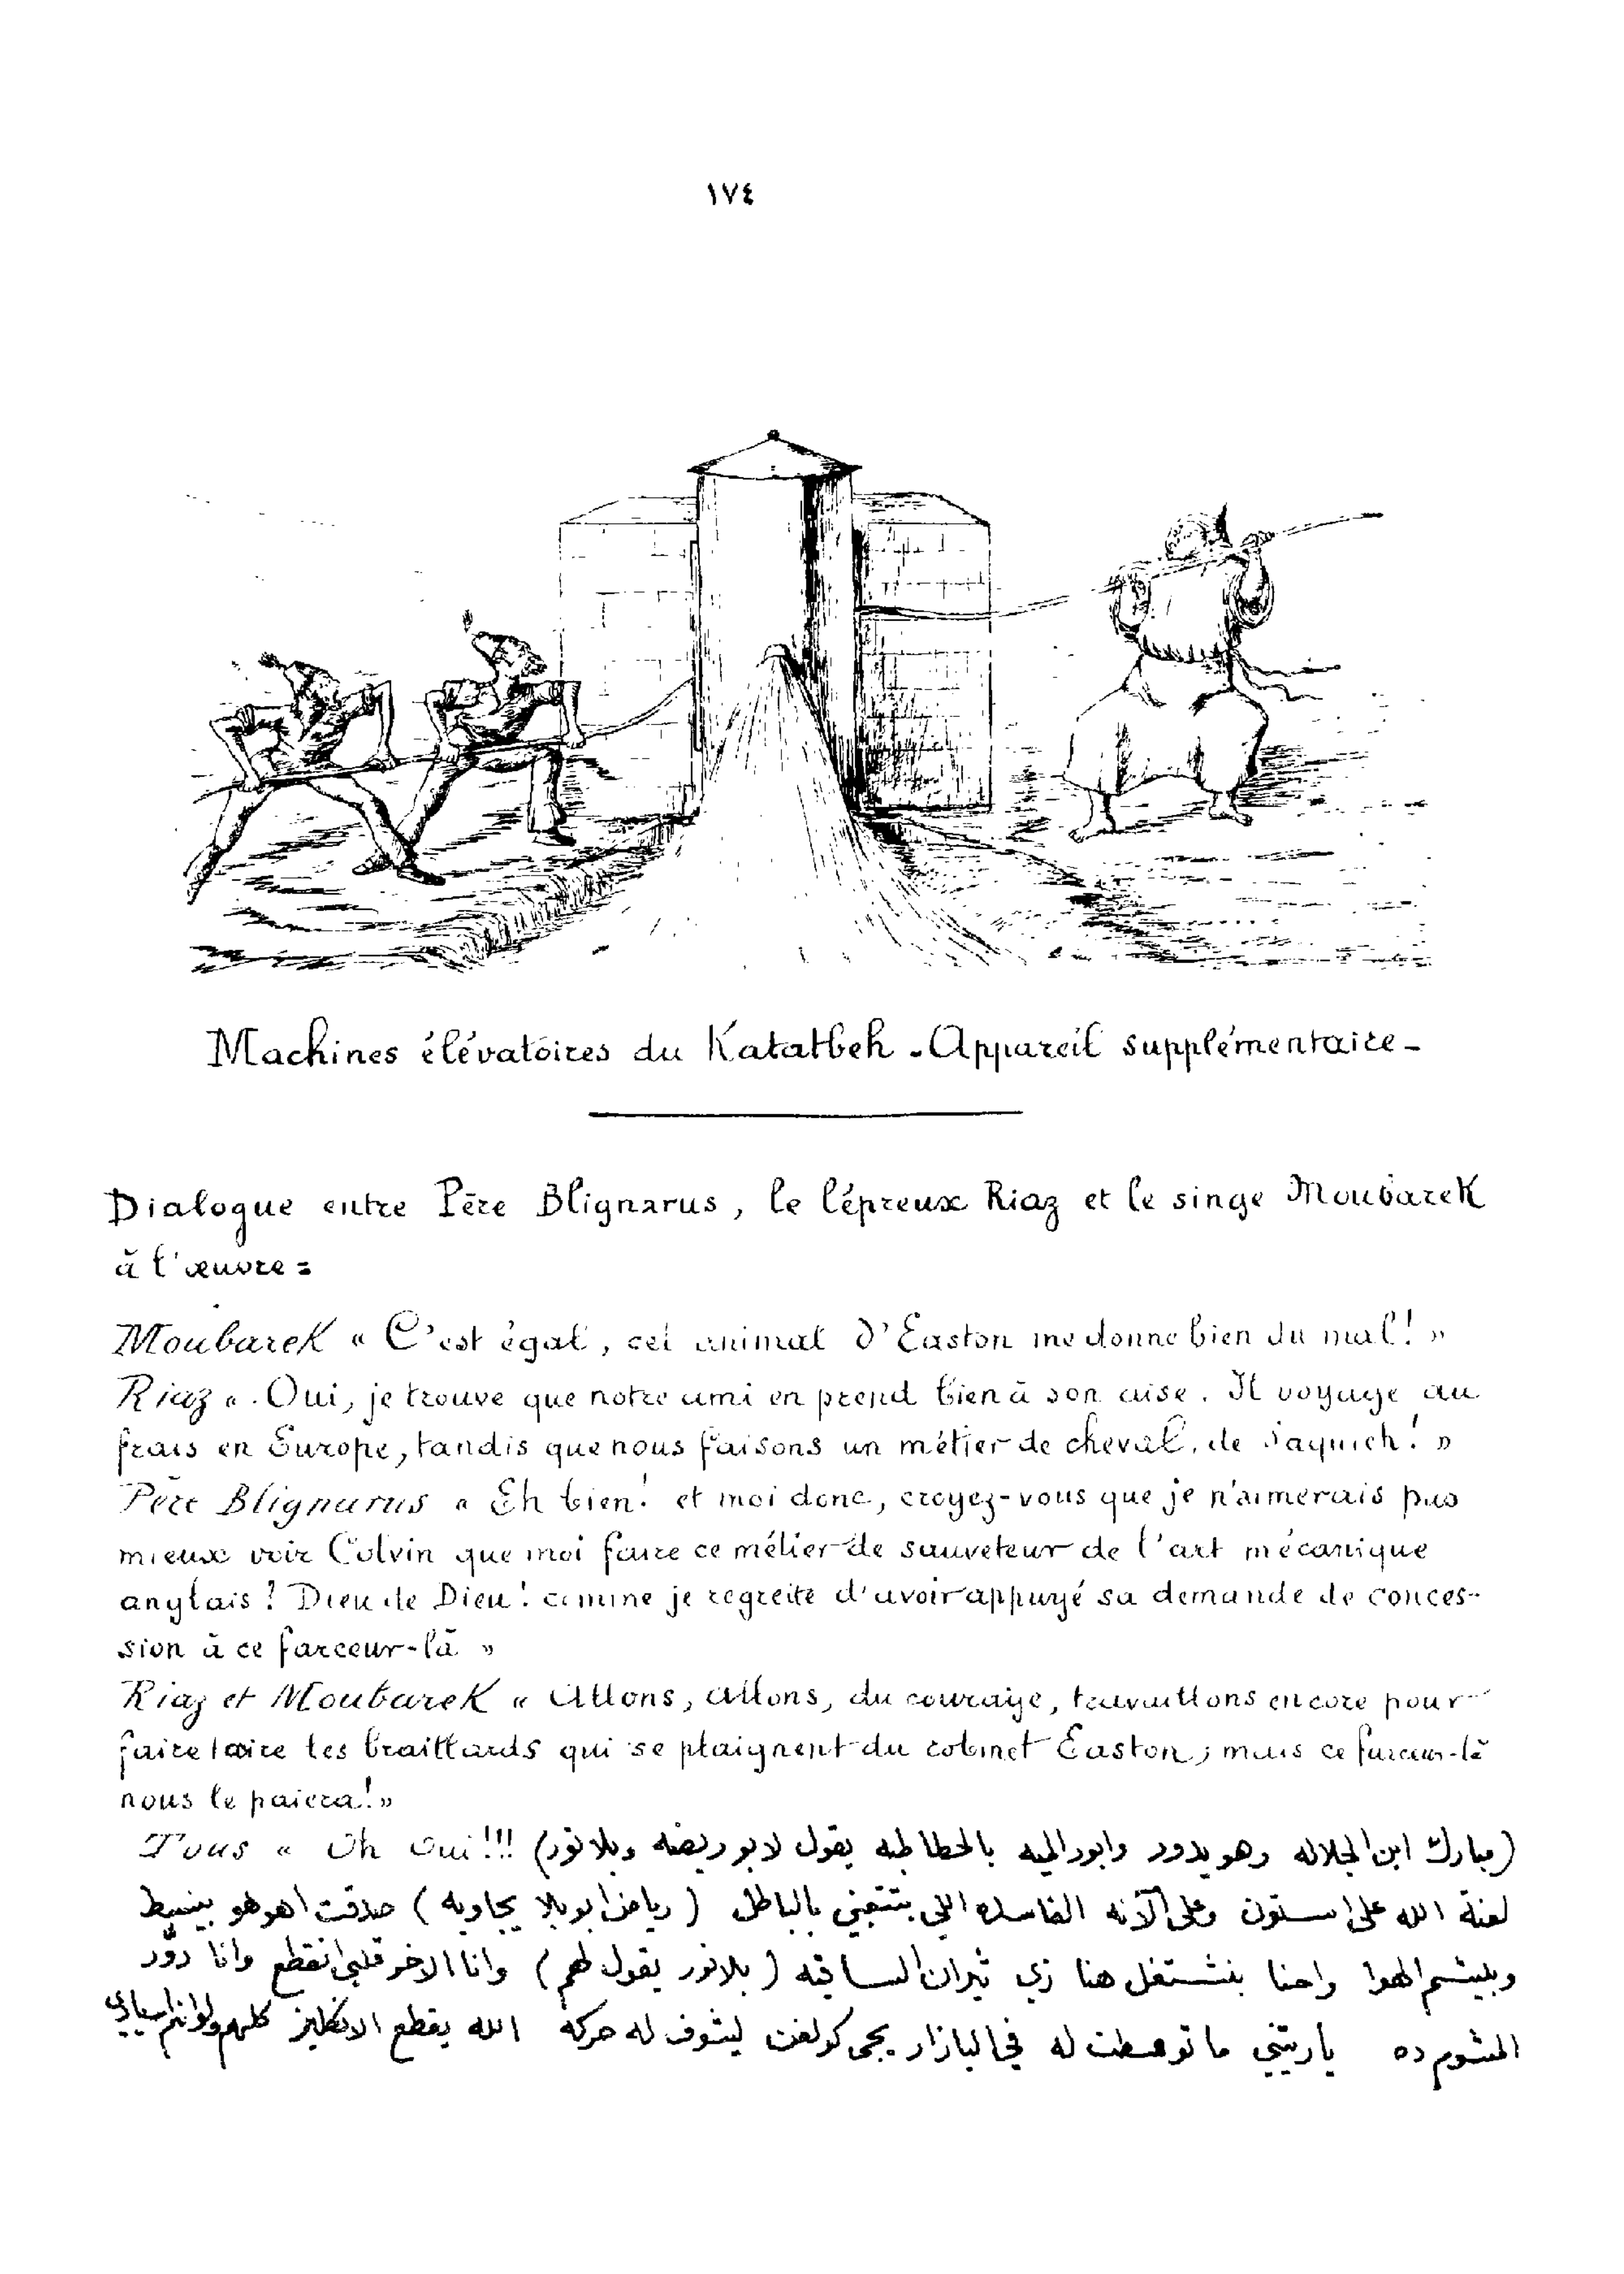 ١٧٤
Machines élévatoires du Katatbeh - Appareil supplémentaire -
Dialogue entre Père Blignarus, le lépreux Riaz et le singe Moubarek
à l'œuvre =
Moubarek « C'est égal, cet animal d'Easton me donne bien du mal! »
Riaz « Oui, je trouve que notre ami en prend bien à son aise. Il voyage au
frais en Europe, tandis que nous faisons un métier de cheval de saquieh! »
Père Blignarus « Eh bien! et moi donc, croyez-vous que je n'aimerais pas
mieux voir Colvin que moi faire ce métier de sauveteur de l'art mécanique
anglais? Dieu de Dieu! comme je regrette d'avoir appuyé sa demande de conces-
sion à ce farceur-là »
Riaz et Moubarek « Allons, allons, du courage, travaillons encore pour
faire taire les braillards qui se plaignent du robinet Easton; mais ce farceur-là
nous le paiera! »
Tous « Oh oui!!! (مبارك ابن الجلاله وهو يدور وابور الميه بالخطاطبه يقول لابو ريضه وبلانور)
لعنة الله على استون وعلى آلاته الفاسده اللي بتتعبني بالباطل (رياض ابو بلا يجاوبه) صدقت اهو هو بينبسط
وبيشم الهوا واحنا بنشتغل هنا زي تيران الساقيه (بلانور يقول لهم) وانا الاخر قلبي انقطع وانا ادوّر
المشوم ده ياريتني ما توسطت له في البازار يجي كولفن ليشوف له حركه الله يقطع الانكليز كلهم ولو انهم اسيادي